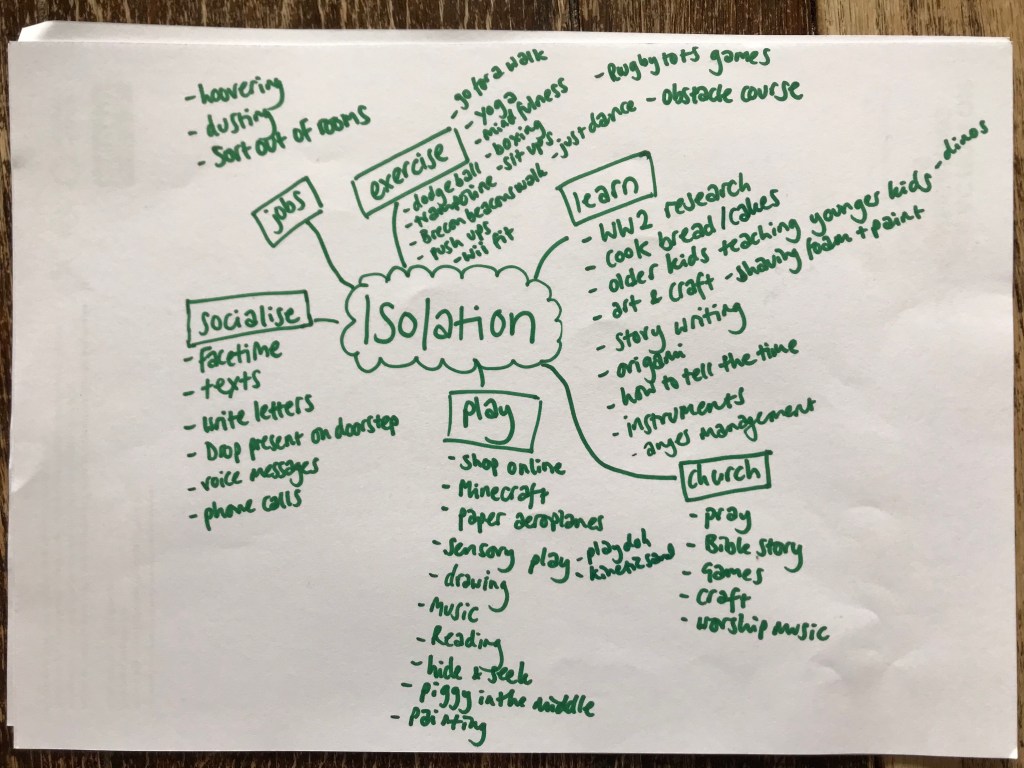 Isolation
jobs
- hoovering
- dusting
- Sort out of rooms
exercise
- go for a walk
- yoga
- mindfulness
- boxing
- sit ups
- just dance
- Rugbytots games
- Obstacle course
- dodgeball
- trampoline
- Brecon beacons walk
- push ups
- wii fit
learn
- WW2 research
- cook bread/cakes
- older kids teaching younger kids - dinos
- art & craft - shaving foam + paint
- story writing
- origami
- how to tell the time
- instruments
- anger management
socialise
- facetime
- texts
- write letters
- Drop present on doorstep
- voice messages
- phone calls
play
- shop online
- Minecraft
- paper aeroplanes
- sensory play - playdoh
- kinetic sand
- drawing
- Music
- Reading
- hide & seek
- piggy in the middle
- painting
church
- pray
- Bible story
- Games
- craft
- worship music